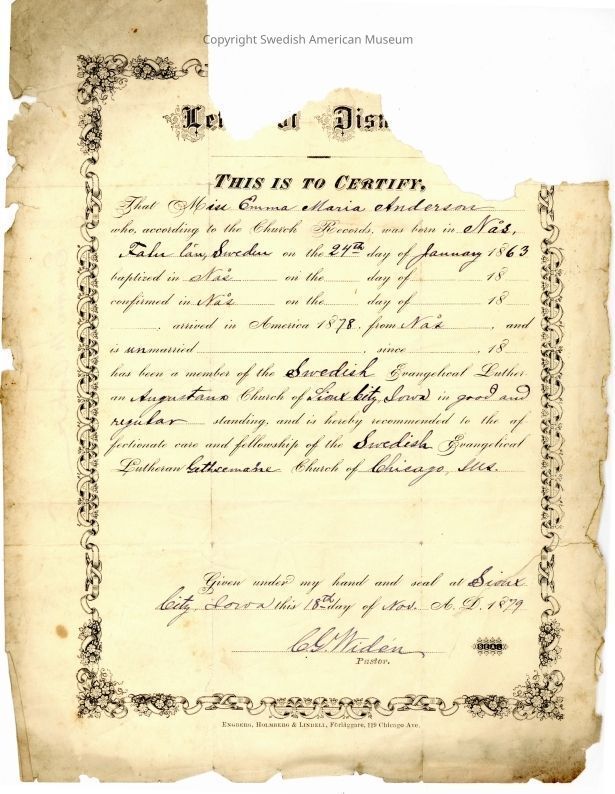 Copyright Swedish American Museum
Let of Dism
THIS IS TO CERTIFY,
That Miss Emma Maria Anderson
who, according to the Church Records, was born in Nås,
Falu län, Sweden on the 24th day of January 1863
baptized in Nås on the day of 18
confirmed in Nås on the day of 18
arrived in America 1878, from Nås, and
is unmarried since 18
has been a member of the Swedish Evangelical Luther
an Augustana Church of Sioux City, Iowa in good and
regular standing, and is hereby recommended to the af
fectionate care and fellowship of the Swedish Evangelical
Lutheran Gethsemane Church of Chicago, Ills.
Given under my hand and seal at Sioux
City, Iowa this 18th day of Nov. A. D. 1879
C.G. Widén
Pastor.
SEAL
ENGBERG, HOLMBERG & LINDELL, Förläggare, 119 Chicago Ave.